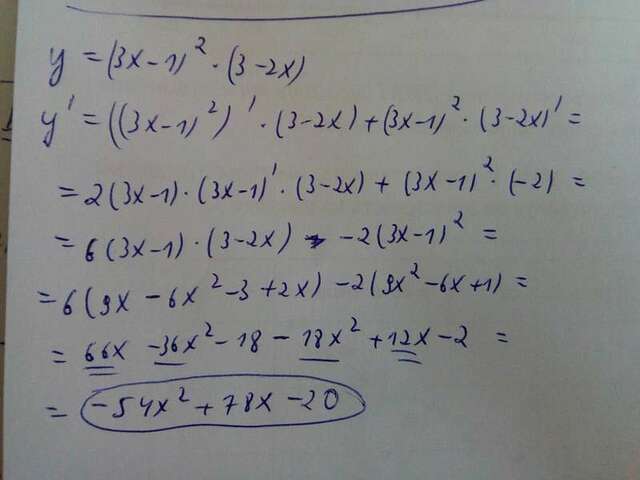 y = (3x-1)² · (3-2x)
y' = ((3x-1)²)' · (3-2x) + (3x-1)² · (3-2x)' =
= 2(3x-1) · (3x-1)' · (3-2x) + (3x-1)² · (-2) =
= 6(3x-1) · (3-2x) - 2(3x-1)² =
= 6(9x - 6x² - 3 + 2x) - 2(9x² - 6x + 1) =
= 66x - 36x² - 18 - 18x² + 12x - 2 =
= -54x² + 78x - 20